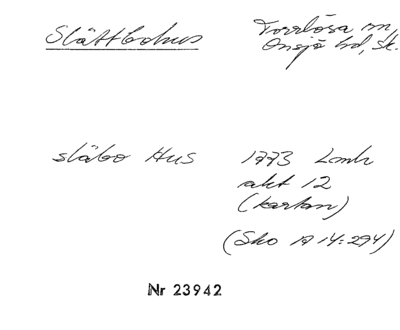 Slättbohus
Torrlösa sn,
Onsjö hd, Sk.
släbo Hus
1773 Lmh
akt 12
(kartan)
(Sko A 14:294)
Nr 23942